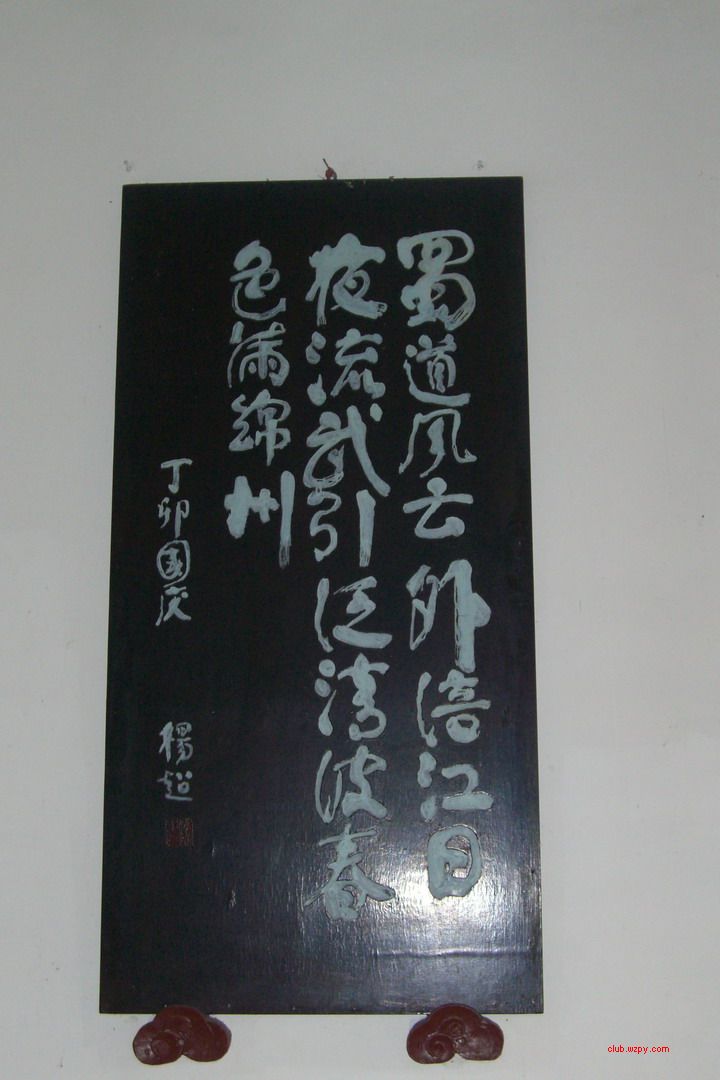 蜀道风云外涪江日
夜流武引泛清波春
色满绵州
丁卯国庆
杨超
club.wzpy.com